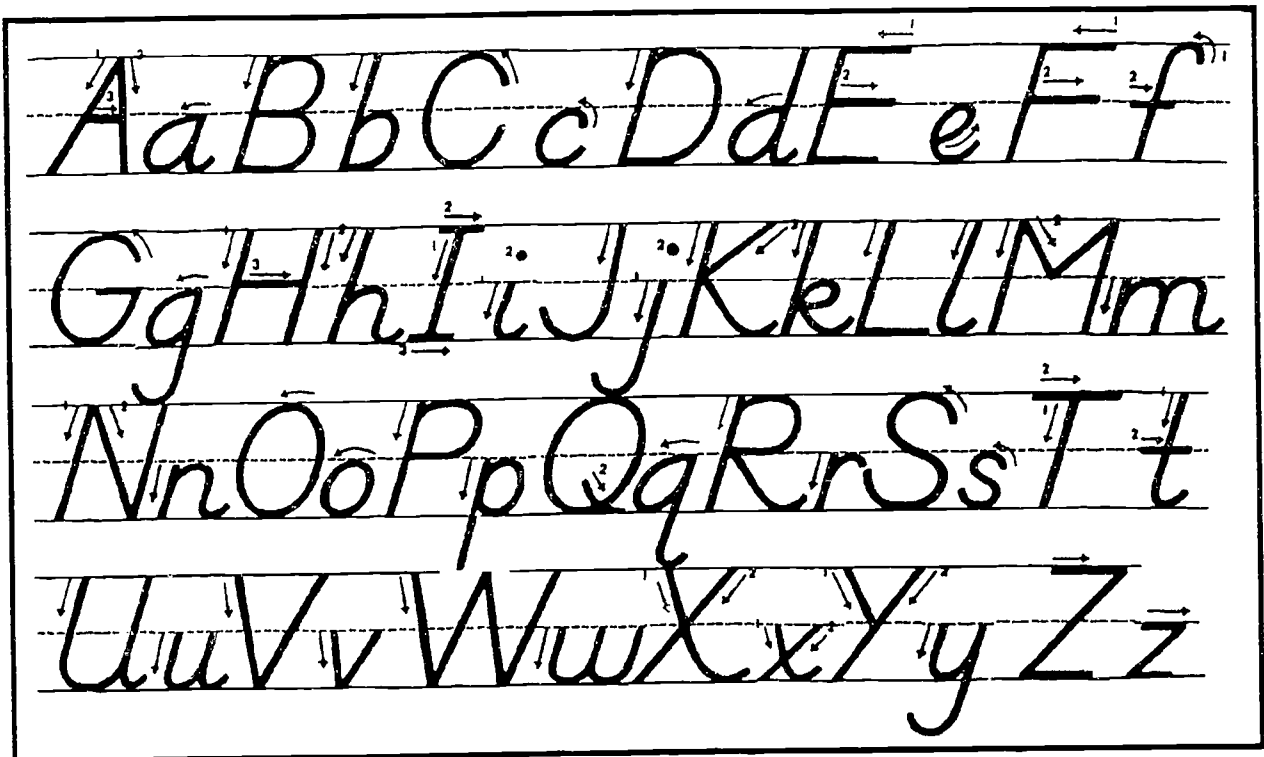 A a B b C c D d E e F f
G g H h I i J j K k L l M m
N n O o P p Q q R r S s T t
U u V v W w X x Y y Z z